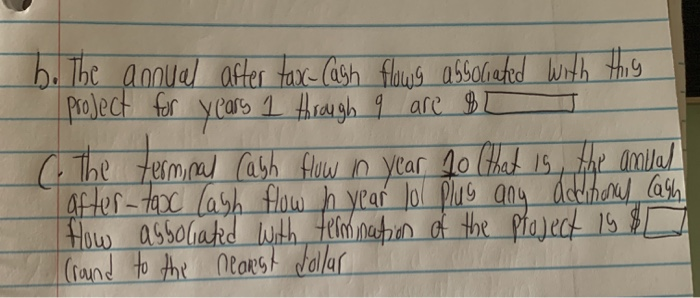 b. The annual after tax-Cash flows associated with this
project for years 1 through 9 are $
C. The terminal Cash flow in year 10 (that is, the annual
after-tax Cash flow in year 10 plus any additional Cash
flow associated with termination of the project is $
(round to the nearest dollar